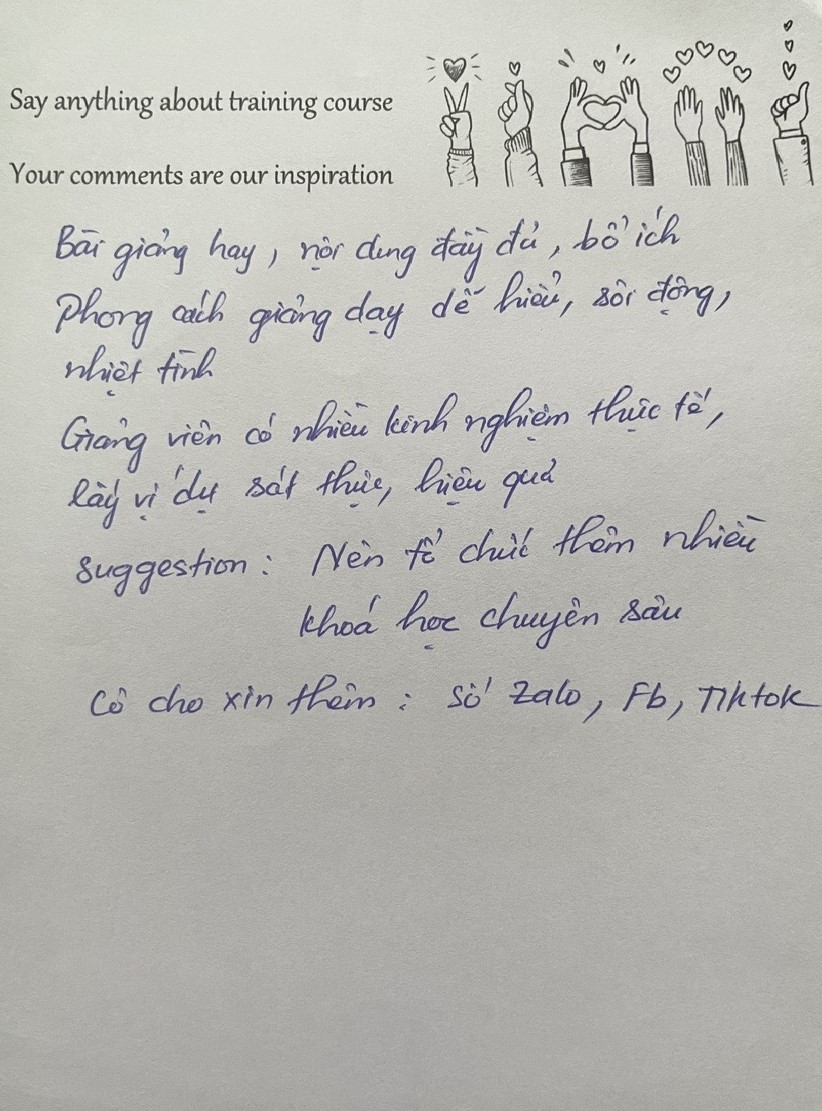 Say anything about training course
Your comments are our inspiration
Bài giảng hay, nội dung đầy đủ, bổ ích
Phong cách giảng dạy dễ hiểu, sôi động,
nhiệt tình
Giảng viên có nhiều kinh nghiệm thực tế,
lấy ví dụ sát thực, hiệu quả
suggestion: Nên tổ chức thêm nhiều
khoá học chuyên sâu
Cô cho xin thêm: số Zalo, Fb, Tiktok